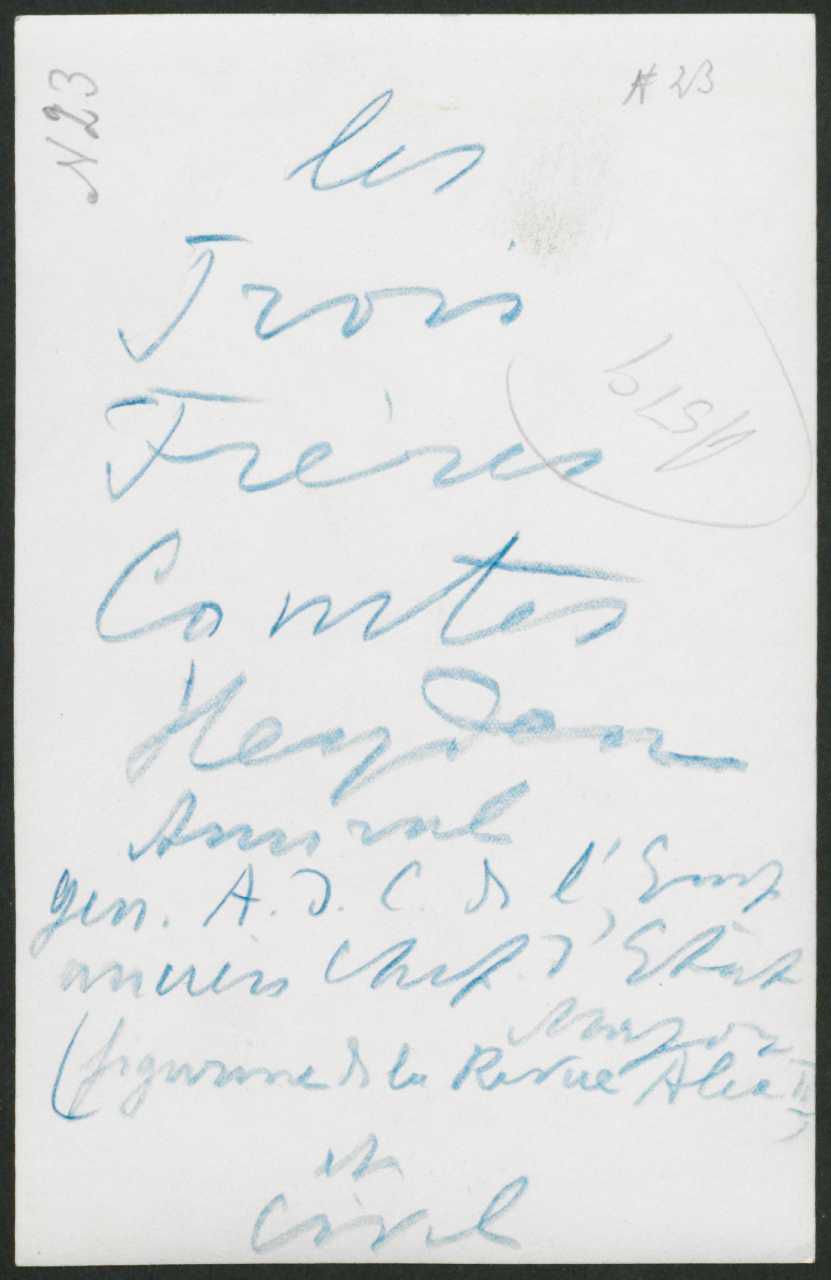 N 23
# 23
les
Trois
Frères
Comtes
Heyden
Amiral
gen. A. D. C. de l'Emp
ancien Chef d'Etat
Major
(figurine de la Revue Alex II)
et
civil